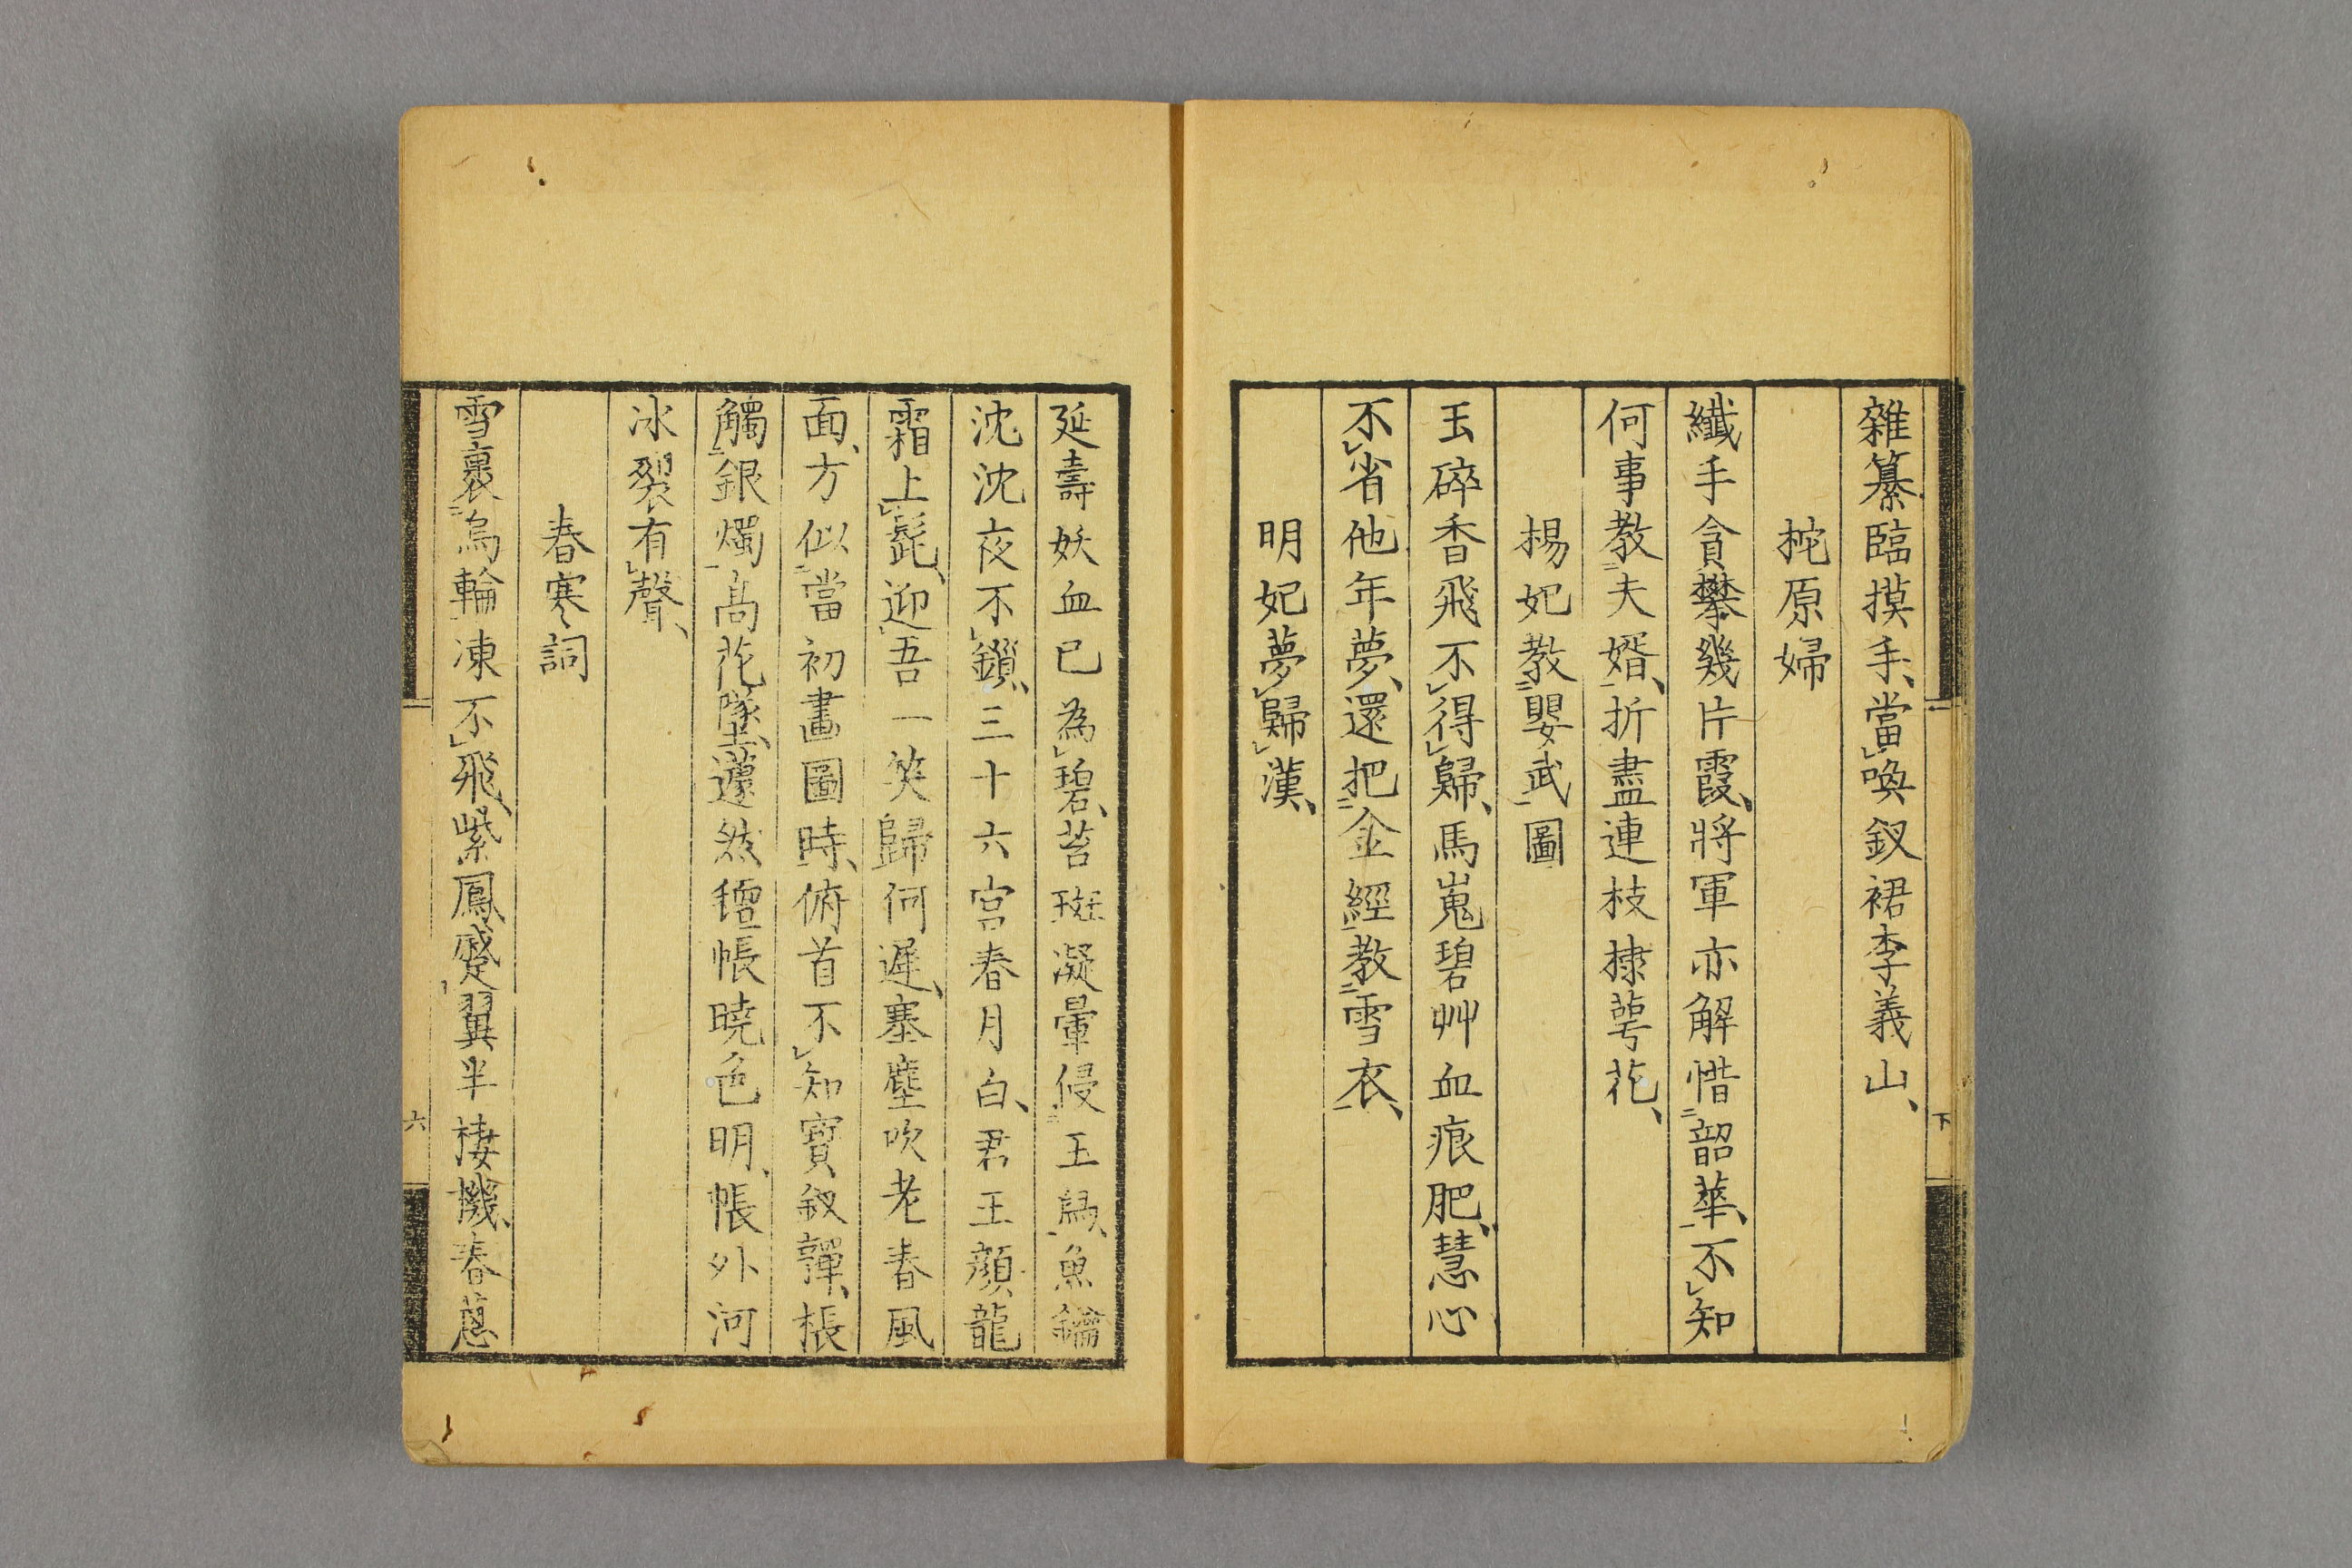 雜纂臨摸手、當喚釵裙李義山、
挖原婦
纖手貪攀幾片霞、將軍亦解惜韶華、不知
何事教夫婿、折盡連枝棣萼花、
楊妃教鸚武圖
玉碎香飛不得歸、馬嵬碧艸血痕肥、慧心
不省他年夢、還把金經教雪衣、
明妃夢歸漢、
下
延壽妖血已為碧、苔斑凝暈侵玉舄、魚鑰
沈沈夜不鎖、三十六宮春月白、君王顏龍
霜上髭、迎吾一笑歸何遲、塞塵吹老春風
面、方似當初畫圖時、俯首不知寶釵嚲、棖
觸銀燭高花墜、蘧然氊帳曉色明、帳外河
冰裂有聲、
春寒詞
雪裹烏輪凍不飛、紫鳳蹙翼半棲機、春蔥
六